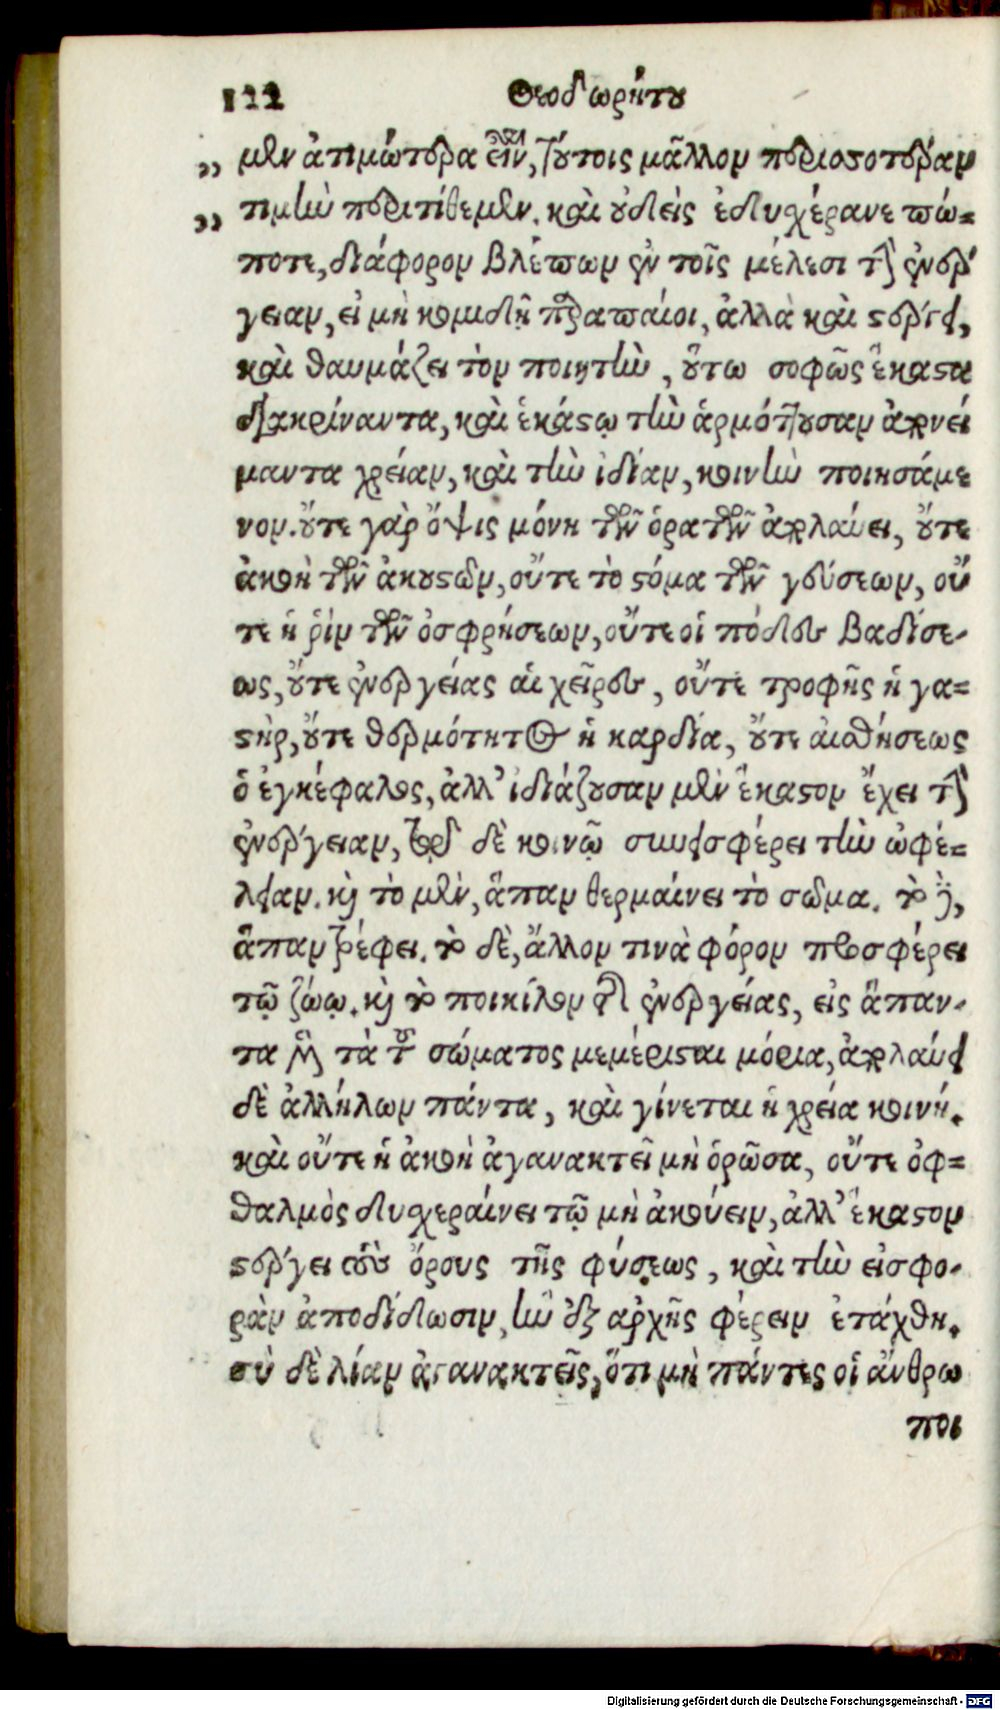 122 Θεοδωρήτου
„ μὲν ἀτιμώτερα εἶναι, τούτοις μᾶλλον περισσοτέραν
„ τιμὴν περιτίθεμεν. καὶ οὐδεὶς ἐδυχέρανε πώ-
ποτε, διάφορον βλέπων ἐν τοῖς μέλεσι τὴν ἐνέρ
γειαν, εἰ μὴ κομιδῇ παραπαίοι, ἀλλὰ καὶ στέργει,
καὶ θαυμάζει τὸν ποιητὴν, οὕτω σοφῶς ἕκαστα
διακρίναντα, καὶ ἑκάστῳ τὴν ἁρμόττουσαν ἀπονεί
μαντα χρείαν, καὶ τὴν ἰδίαν, κοινὴν ποιησάμε
νον. οὔτε γὰρ ὄψις μόνη τῶν ὁρατῶν ἀπολαύει, οὔτε
ἀκοὴ τῶν ἀκουστῶν, οὔτε τὸ στόμα τῶν γεύσεων, οὔ
τε ἡ ῥὶν τῶν ὀσφρήσεων, οὔτε οἱ πόδες βαδίσε-
ως, οὔτε ἐνεργείας αἱ χεῖρες, οὔτε τροφῆς ἡ γα-
στὴρ, οὔτε θερμότητος ἡ καρδία, οὔτε αἰσθήσεως
ὁ ἐγκέφαλος, ἀλλ' ἰδιάζουσαν μὲν ἕκαστον ἔχει τὴν
ἐνέργειαν, δὲ κοινῷ συνεισφέρει τὴν ὠφέ-
λειαν. καὶ τὸ μὲν, ἅπαν θερμαίνει τὸ σῶμα. τὸ δὲ,
ἅπαν τρέφει. τὸ δὲ, ἄλλον τινὰ φόρον προσφέρει
τῷ ζώῳ. καὶ τὸ ποικίλον τῆς ἐνεργείας, εἰς ἅπαν-
τα μὲν τὰ τοῦ σώματος μεμέρισται μόρια, ἀπολαύει
δὲ ἀλλήλων πάντα, καὶ γίνεται ἡ χρεία κοινή.
καὶ οὔτε ἡ ἀκοὴ ἀγανακτεῖ μὴ ὁρῶσα, οὔτε ὀφ-
θαλμὸς δυχεραίνει τῷ μὴ ἀκούειν, ἀλλ' ἕκαστον
στέργει τοὺς ὅρους τῆς φύσεως, καὶ τὴν εἰσφο-
ρὰν ἀποδίδωσιν, ἣν ἐξ ἀρχῆς φέρειν ἐτάχθη.
σὺ δὲ λίαν ἀγανακτεῖς, ὅτι μὴ πάντες οἱ ἄνθρω
ποι
Digitalisierung gefördert durch die Deutsche Forschungsgemeinschaft - DFG